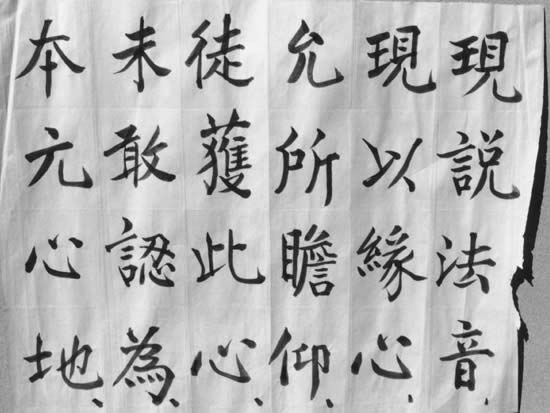 現説法音、
現以緣心、
允所瞻仰、
徒獲此心、
未敢認為、
本元心地、